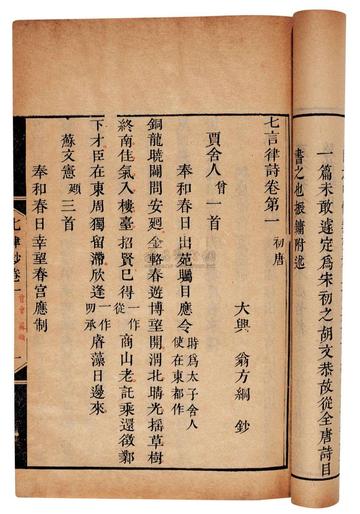 一篇未敢遽定爲宋初之胡文恭故從全唐詩目
書之也振鏞附述
七言律詩卷第一 初唐
大興 翁方綱 鈔
賈舍人 曾 一首
奉和春日出苑矚目應令 時爲太子舍人使在東都作
銅龍曉闢問安廻金輅春遊博望開渭北晴光搖草樹
終南佳氣入樓臺招賢已得一作從商山老託乘還徵鄴
下才臣在東周獨留滯欣逢一作叨承睿藻日邊來
蘇文憲 頲 三首
奉和春日幸望春宫應制
七律鈔卷一 賈曾 蘇頲 一